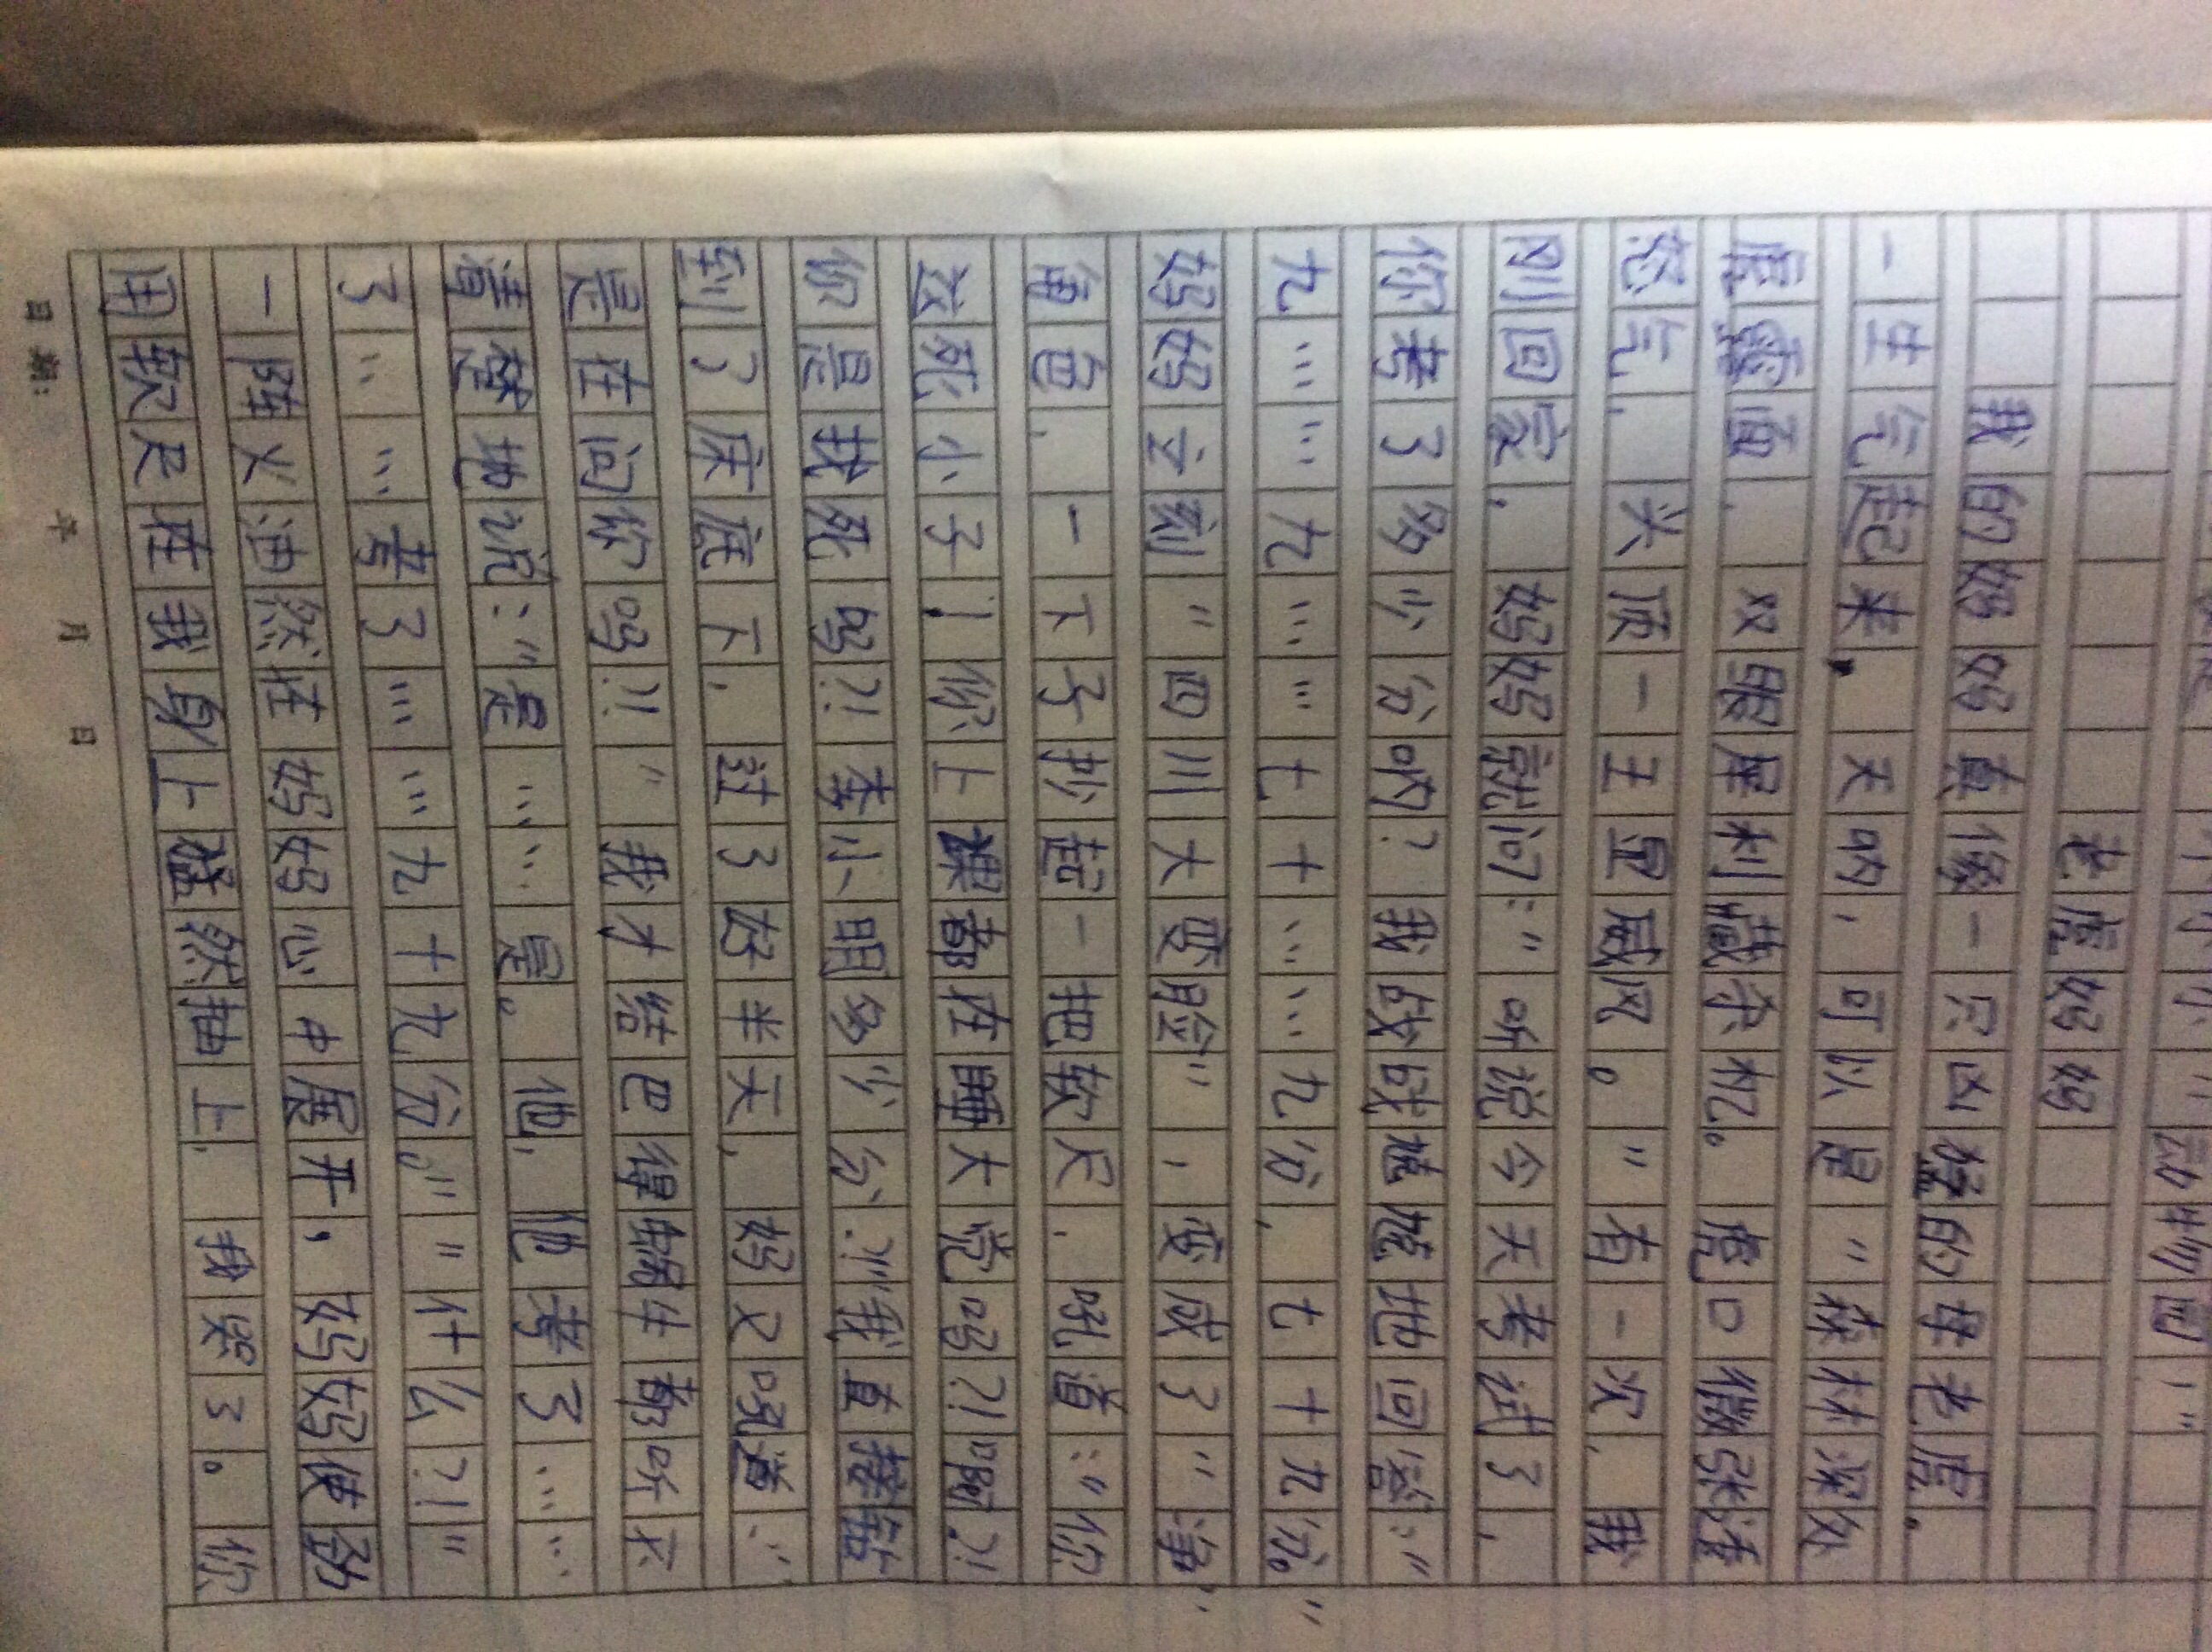 动物园！"
老虎妈妈
我的妈妈真像一只凶猛的母老虎。
一生气起来，天呐，可以是"森林深处
虎露面，双眼犀利藏杀机。虎口微张添
怒气，头顶一王显威风。"有一次，我
刚回家，妈妈就问："听说今天考试了，
你考了多少分呐？我战战地回答："
九……九……七十……九分，七十九分。"
妈妈立刻"四川大变脸"，变成了"净"
角色，一下子抄起一把软尺，吼道："你
这死小子！你上课都在睡大觉吗？！啊？！
你是找死吗？！李小明多少分？！"我直接钻
到了床底下，过了好半天，妈又吼道："
是在问你吗？！"我才结巴得蜗牛都听不
清楚地说："是……是。他，他考了……
了……考了……九十九分。""什么？！"
一阵火油然在妈妈心中展开，妈妈使劲
用软尺在我身上猛然抽上，我哭了。你
日期: 年 月 日